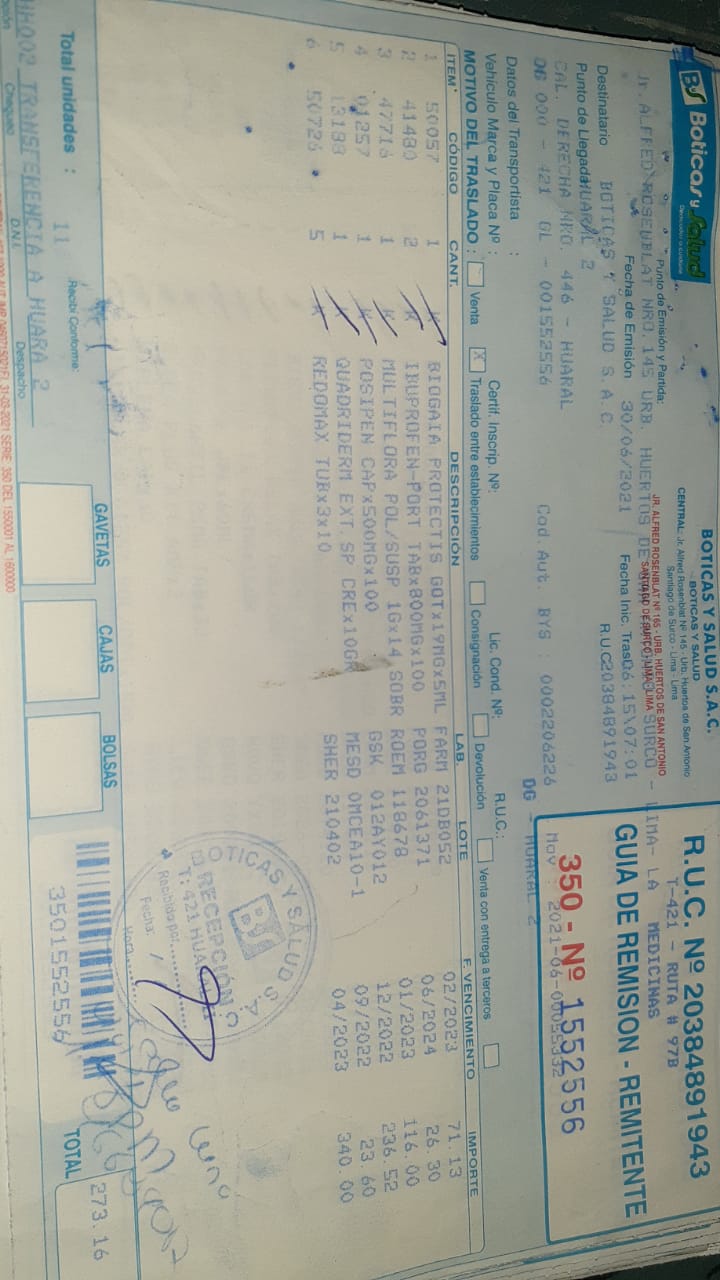 BS Boticas y Salud
BOTICAS Y SALUD S.A.C.
BOTICAS Y SALUD
CENTRAL: Jr. Alfred Rosenblat Nº 145 - Urb. Huertos de San Antonio
Santiago de Surco - Lima - Lima
JR. ALFRED ROSENBLAT Nº 165 - URB. HUERTOS DE SAN ANTONIO
SANTIAGO DE SURCO - LIMA - LIMA
R.U.C. Nº 20384891943
T-421 - RUTA # 97B
MEDICINAS
GUIA DE REMISION - REMITENTE
350 - Nº 1552556
Punto de Emisión y Partida:
Jr. ALFREDO ROSENBLAT NRO. 145 URB. HUERTOS DE SURCO - LIMA- LA
Fecha de Emisión 30/06/2021 Fecha Inic. Tras 06:15\07:01
Destinatario BOTICAS Y SALUD S.A.C. R.U.C 20384891943
Punto de Llegada HUARAL 2
CAL. DERECHA NRO. 446 - HUARAL
06 000 - 421 GL - 001552556 Cod Aut. BYS : 0002206226
DG - HUARAL 2
Datos del Transportista :
Vehiculo Marca y Placa Nº : Certif. Inscrip. Nº: Lic. Cond. Nº: R.U.C.:
MOTIVO DEL TRASLADO : Venta X Traslado entre establecimientos Consignación Devolución Venta con entrega a terceros
ITEM CÓDIGO CANT. DESCRIPCIÓN LAB. LOTE F. VENCIMIENTO IMPORTE
1 50057 1 BIOGAIA PROTECTIS GOTx19MGx5ML FARM 21DB052 02/2023 71.13
2 41480 2 IBUPROFEN-PORT TABx800MGx100 PORG 2061371 06/2024 26.30
3 47716 1 MULTIFLORA POL/SUSP 1Gx14 SOBR ROEM 118678 01/2023 116.00
4 01257 1 POSIPEN CAPx500MGx100 GSK 012AY012 12/2022 236.52
5 13188 1 QUADRIDERM EXT.SP CREx10GR MESD OMCEA10-1 09/2022 23.60
6 50726 5 REDOMAX TUBx3x10 SHER 210402 04/2023 340.00
BOTICAS Y SALUD S.A.C
BS
RECEPCIÓN
T: 421 HUARAL
Recibido por:
Fecha: /
Hora
Total unidades : 11
Recibi Conforme:
HH002 TRANSFERENCIA A HUARA 2
Chequeo
Despacho
D.N.I.
GAVETAS
CAJAS
BOLSAS
3501552556
TOTAL 273.16
31-03-2021 SERIE: 350 DEL 1550001 AL 1600000